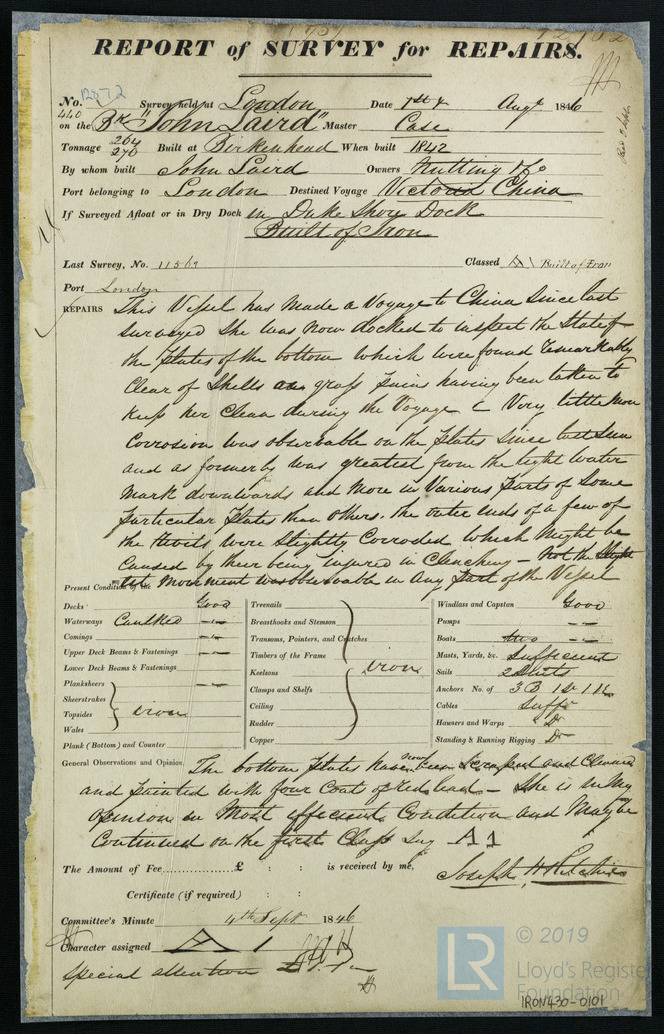 REPORT of SURVEY for REPAIRS.
No. 12572 Survey held at London Date 1st & Augt 1846
440
on the Bk "John Laird" Master Case
Tonnage 264 270 Built at Birkenhead When built 1842
By whom built John Laird Owners Nutting & Co
Port belonging to London Destined Voyage Victoria China
If Surveyed Afloat or in Dry Dock in Duke Shore Dock
Built of Iron
Last Survey, No. 11569 Classed A1 Built of Iron
Port London
REPAIRS This Vessel has Made a Voyage to China Since last
Surveyed She was Now docked to inspect the State of
the plates of the bottom which were found remarkably
Clear of Shells as gross pains having been taken to
Keep her Clean during the Voyage & Very little More
Corrosion was observable on the plates Since last
and as formerly was greatest from the light water
mark downwards and More in Various parts of Some
particular plates than others. the outer ends of a few of
the Rivets were Slightly Corroded which Might be
Caused by their being injured in Clenching - Not the Slight
est Movement was observable in Any part of the Vessel
Present Condition of the
Decks Good
Waterways Caulked "
Comings "
Upper Deck Beams & Fastenings "
Lower Deck Beams & Fastenings
Planksheers "
Sheerstrakes
Topsides iron
Wales
Plank (Bottom) and Counter
Treenails
Breasthooks and Stemson
Transoms, Pointers, and Crutches
Timbers of the Frame
Keelsons iron
Clamps and Shelfs
Ceiling
Rudder
Copper
Windlass and Capstan Good
Pumps "
Boats two "
Masts, Yards, &c. Sufficient
Sails 2 Suits
Anchors No. of 3 B 1 S 1 K
Cables Suff
Hawsers and Warps Do
Standing & Running Rigging Do
General Observations and Opinion, The bottom plates have now been Scraped and Cleaned
and painted with four Coats of red lead - She is in My
opinion in Most efficient Condition and May be
Continued on the first Class Say A1
The Amount of Fee £ : : is received by me,
Joseph H Ritchie
Certificate (if required) : :
Committee's Minute 4th Sept 1846
Character assigned A 1
Special attention
© 2019
LR
Lloyd's Register
Foundation
IRON430-0101